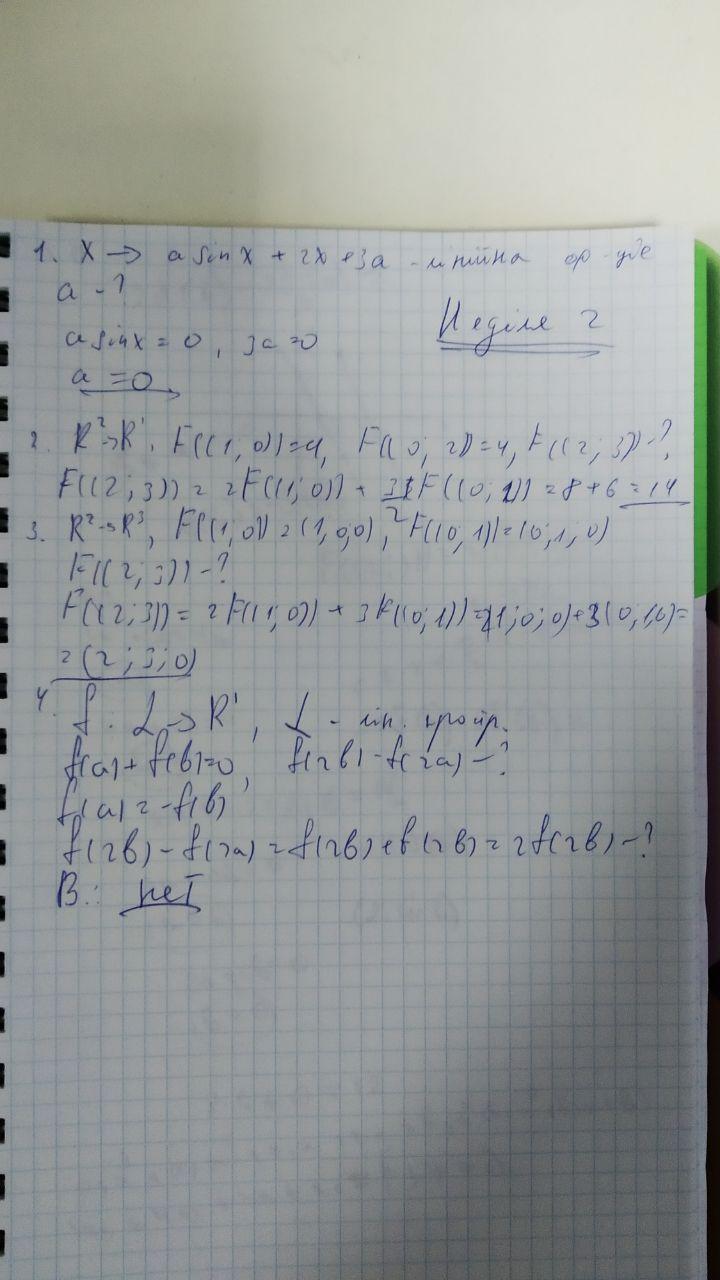 1. X → a sin x + 2x + 3a - лінійна ф-ція
a - ?
Неділя 2
a sin x = 0, 3a = 0
a = 0
2. R² → R¹, F((1, 0)) = 4, F((0; 2)) = 4, F((2; 3)) - ?
F((2; 3)) = 2F((1; 0)) + 3F((0; 1)) = 8 + 6 = 14
3. R² → R³, F((1, 0)) = (1, 0, 0), F((0, 1)) = (0, 1, 0)
F((2; 3)) - ?
F((2; 3)) = 2F((1; 0)) + 3F((0; 1)) = 2(1; 0; 0) + 3(0, 1, 0) =
= (2; 3; 0)
4. f: L → R¹, L - лін. простір.
f(a) + f(b) = 0, f(2b) - f(2a) - ?
f(a) = -f(b)
f(2b) - f(2a) = f(2b) + f(2b) = 2f(2b) - ?
В: нет